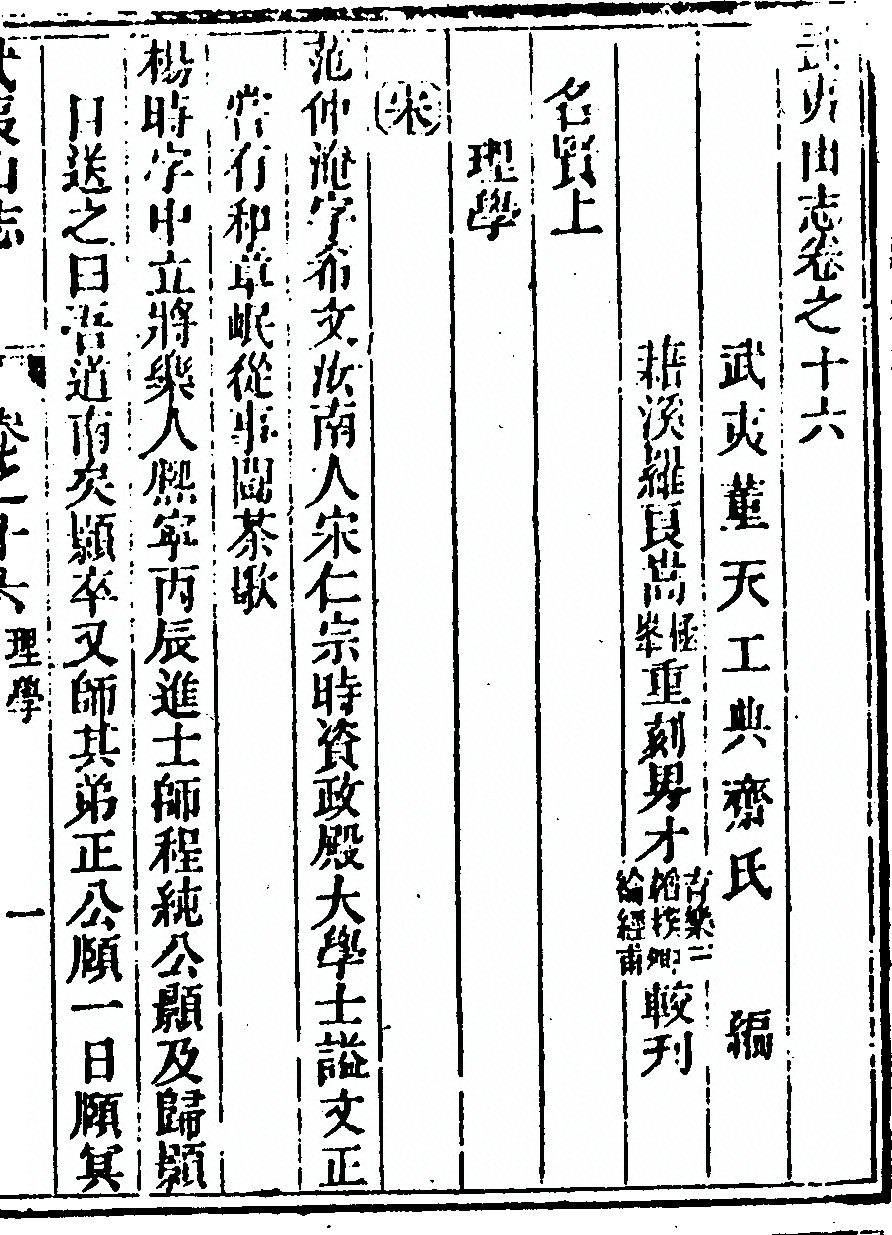 武夷山志卷之十六
武夷董天工典齋氏 編
藉溪羅良嵩極峯重刻男才 較刊
名賢上
理學
宋
范仲淹字希文汝南人宋仁宗時資政殿大學士謚文正
嘗有和章岷從事鬪茶歌
楊時字中立將樂人熙寧丙辰進士師程純公顥及歸顥
目送之曰吾道南矣顥卒又師其弟正公頤一日頤冥
武夷山志 卷之十六 理學 一